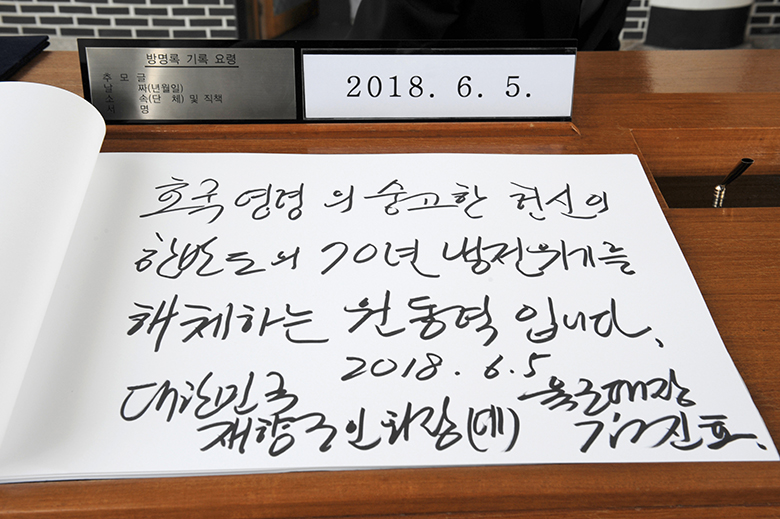 방명록 기록 요령
추 모 글
날 짜(년월일)
소 속(단 체) 및 직책
성 명
2018. 6. 5.
호국영령의 숭고한 헌신의
한반도의 70년 냉전위기를
해체하는 원동력 입니다.
2018. 6. 5
대한민국
재향군인회장(예) 육군대장
김진호.